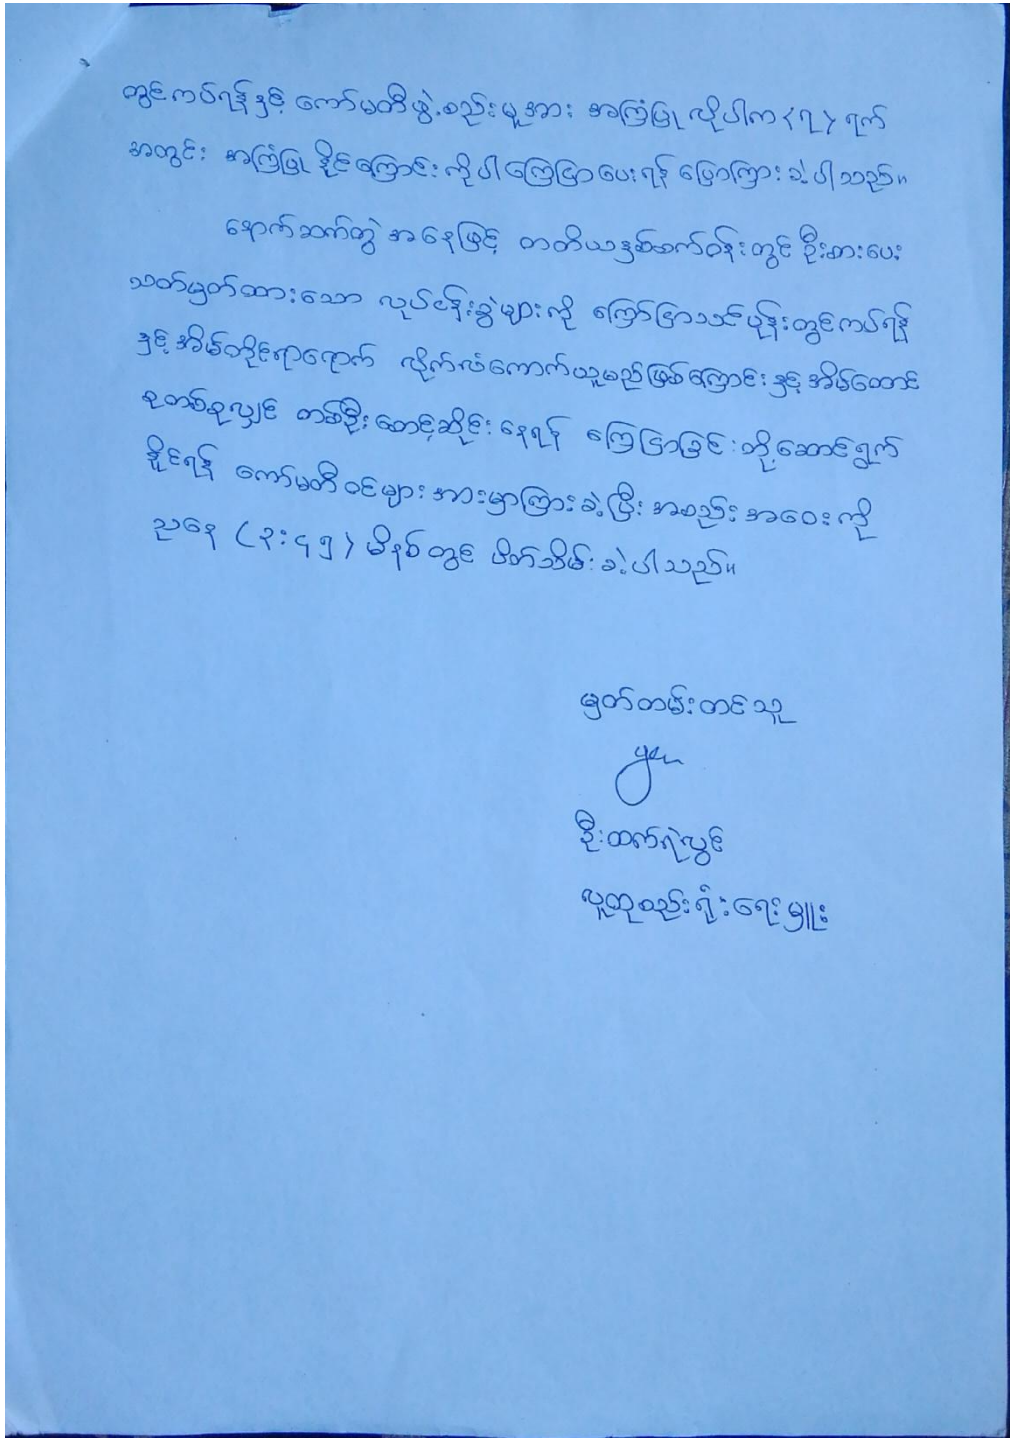 တွင်ကပ်ရန်နှင့် ကော်မတီဖွဲ့စည်းမှုအား အကြံပြု လိုပါက (၇) ရက်
အတွင်း အကြံပြု နိုင်ကြောင်း ကိုပါ ကြေငြာပေးရန် ပြောကြား ခဲ့ပါသည်။
နောက်ဆက်တွဲ အနေဖြင့် တတိယနှစ်စက်ဝန်းတွင် ဦးစားပေး
သတ်မှတ်ထားသော လုပ်ငန်းခွဲများကို ကြော်ငြာသင်ပုန်းတွင်ကပ်ရန်
နှင့် အိမ်တိုင်ရာရောက် လိုက်လံကောက်ယူမည်ဖြစ်ကြောင်း နှင့် အိမ်ထောင်
စုတစ်စုလျှင် တစ်ဦး စောင့်ဆိုင်း နေရန် ကြေငြာခြင်း တို့ဆောင်ရွက်
နိုင်ရန် ကော်မတီဝင်များ အားမှာကြားခဲ့ပြီး အစည်းအဝေးကို
ညနေ (၃:၄၅) မိနစ်တွင် ပိတ်သိမ်း ခဲ့ပါသည်။
မှတ်တမ်းတင်သူ
ဦးထက်ရဲလွင်
လူထုစည်းရုံးရေးမှူး